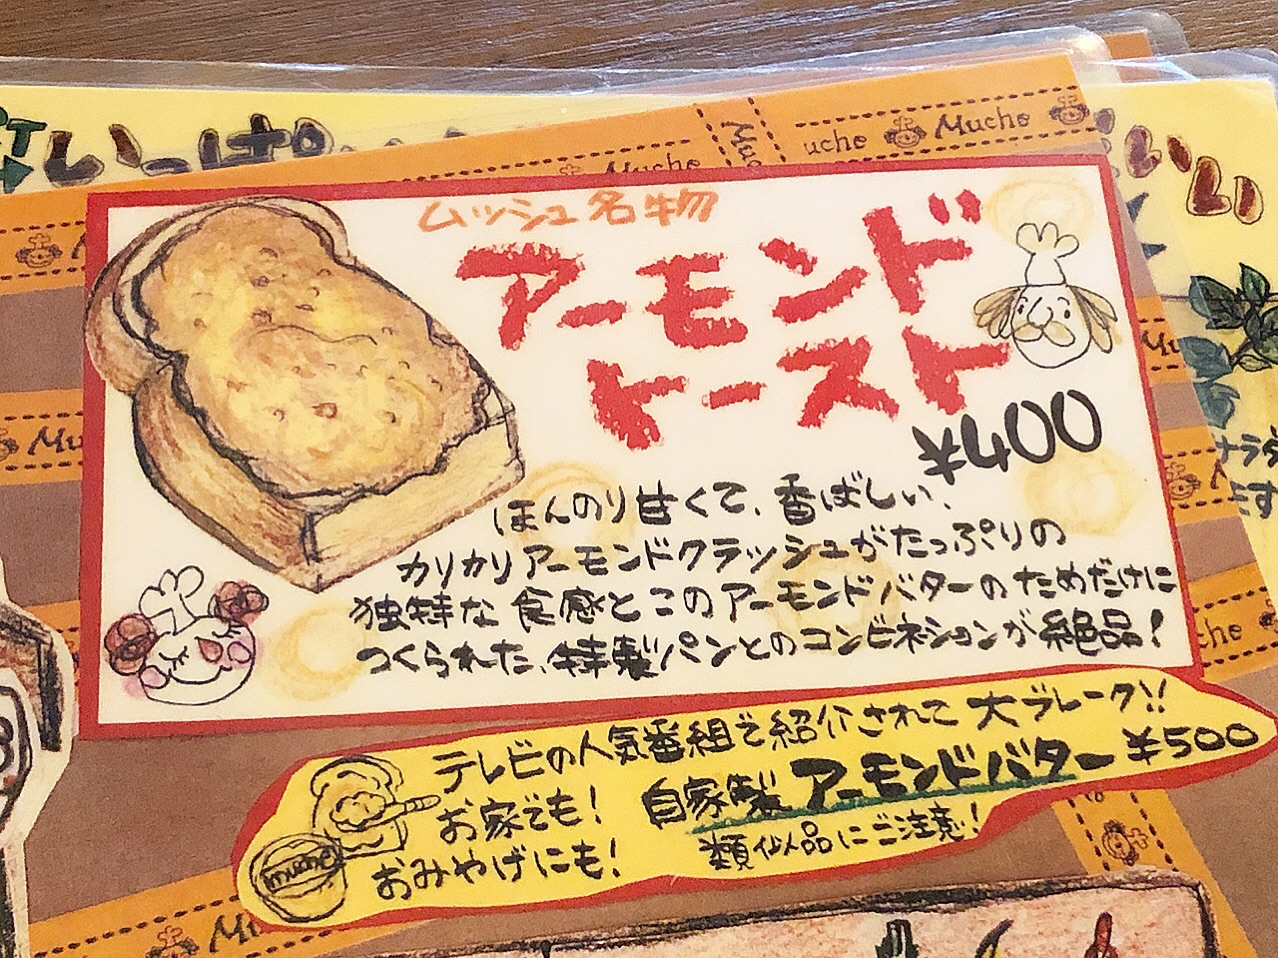 いっぱい
Mucho
ucho
Mucho
ムッシュ名物
アーモンド
トースト
¥400
ほんのり甘くて、香ばしい、
カリカリアーモンドクラッシュがたっぷりの
独特な食感とこのアーモンドバターのためだけに
つくられた、特製パンとのコンビネーションが絶品!
テレビの人気番組で紹介されて大ブレーク!!
お家でも!
自家製アーモンドバター ¥500
おみやげにも!
類似品にご注意!
muche